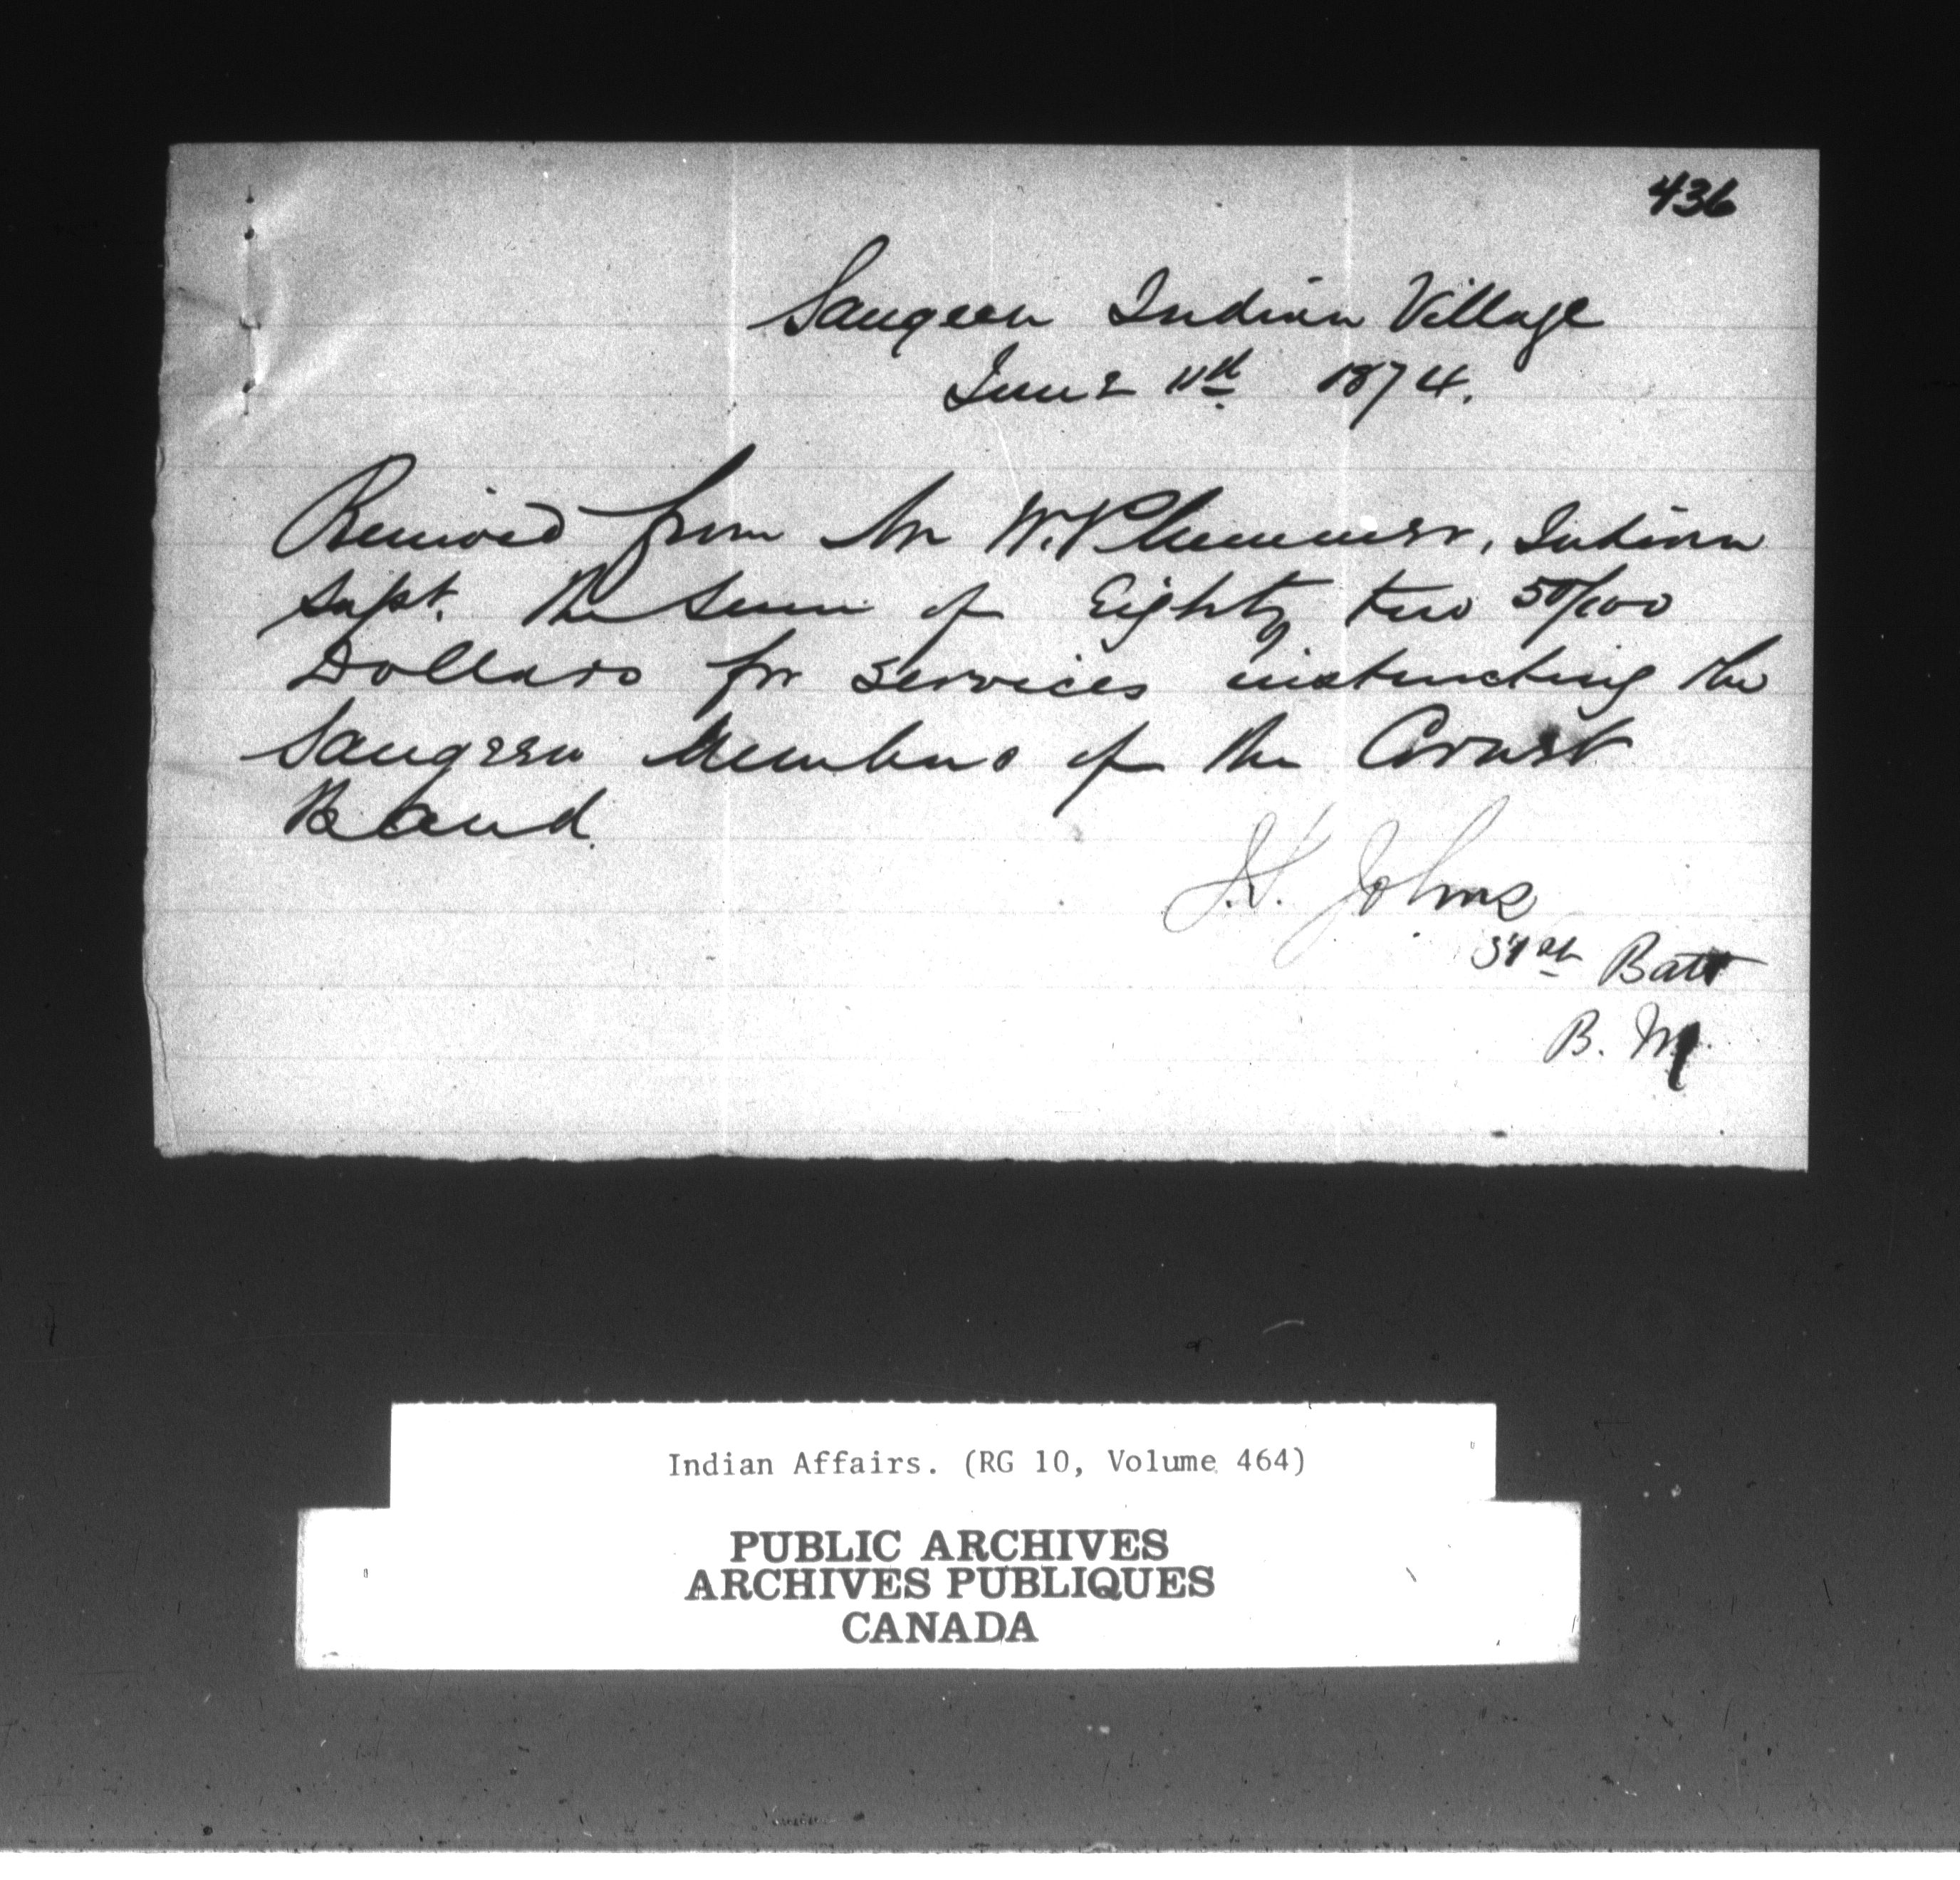 436
Saugeen Indian Village
June 11th 1874.
Received from Mr W. Plummer, Indian
Supt. the sum of Eighty two 50/100
Dollars for services instructing the
Saugeen Members of the Cornet
Band.
Johns
Batt
B. M.
Indian Affairs. (RG 10, Volume 464)
PUBLIC ARCHIVES
ARCHIVES PUBLIQUES
CANADA